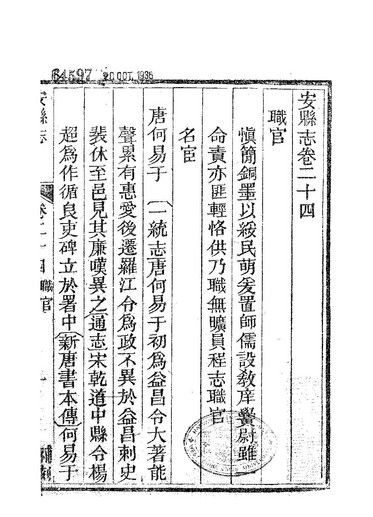 64597 20 OCT. 1936
安縣志卷二十四
職官
慎簡銅墨以綏民萌爰置師儒設教庠黌尉雖
命責亦匪輕恪供乃職無曠員程志職官
名宦
唐何易于 一統志唐何易于初為益昌令大著能
聲累有惠愛後遷羅江令為政不異於益昌刺史
裴休至邑見其廉嘆異之通志宋乾道中縣令楊
超為作循良吏碑立於署中新唐書本傳何易于
安縣志
卷二十四 職官
一